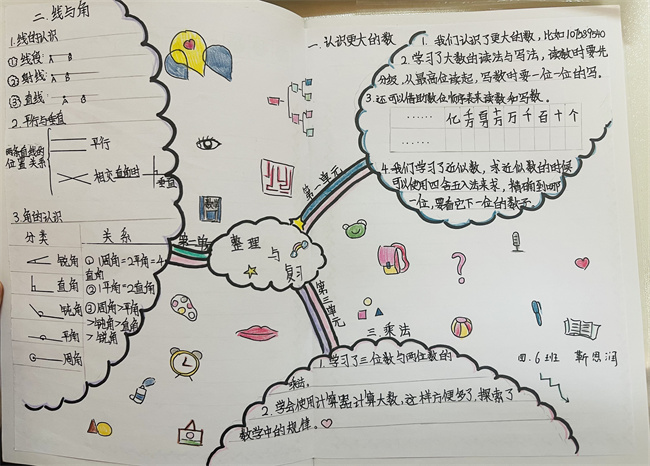 二.线与角
1.线的认识
①线段: A B
②射线: A B
③直线: A B
2.平行与垂直
两条直线的
位置关系
平行
相交 直角时
垂直
3.角的认识
分类
关系
锐角
直角
钝角
平角
周角
①1周角=2平角=4
直角
②1平角=2直角
③周角>平角
>钝角>直角
>锐角
第二单
整理
与
复习
第一单元
第三单元
一.认识更大的数
1.我们认识了更大的数,比如
2.学习了大数的读法与写法,读数时要先
分级.从最高位读起,写数时要一位一位的写。
3.还可以借助数位顺序表来读数和写数。
…… 亿 千万 百万 十万 万 千 百 十 个
……
4.我们学习了近似数,求近似数的时候
可以使用四舍五入法来求,精确到哪
一位,要看它下一位的数字
三.乘法
1.学习了三位数与两位数的
乘法。
2.学会使用计算器计算大数,这样方便多了,探索了
数学中的规律。
四.6班 靳恩润